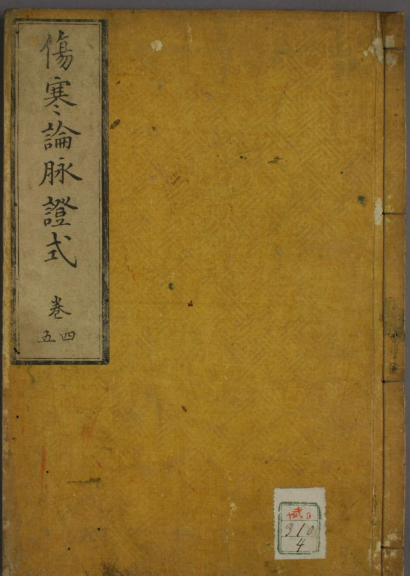 傷寒論脉證式
巻
四五
310
4